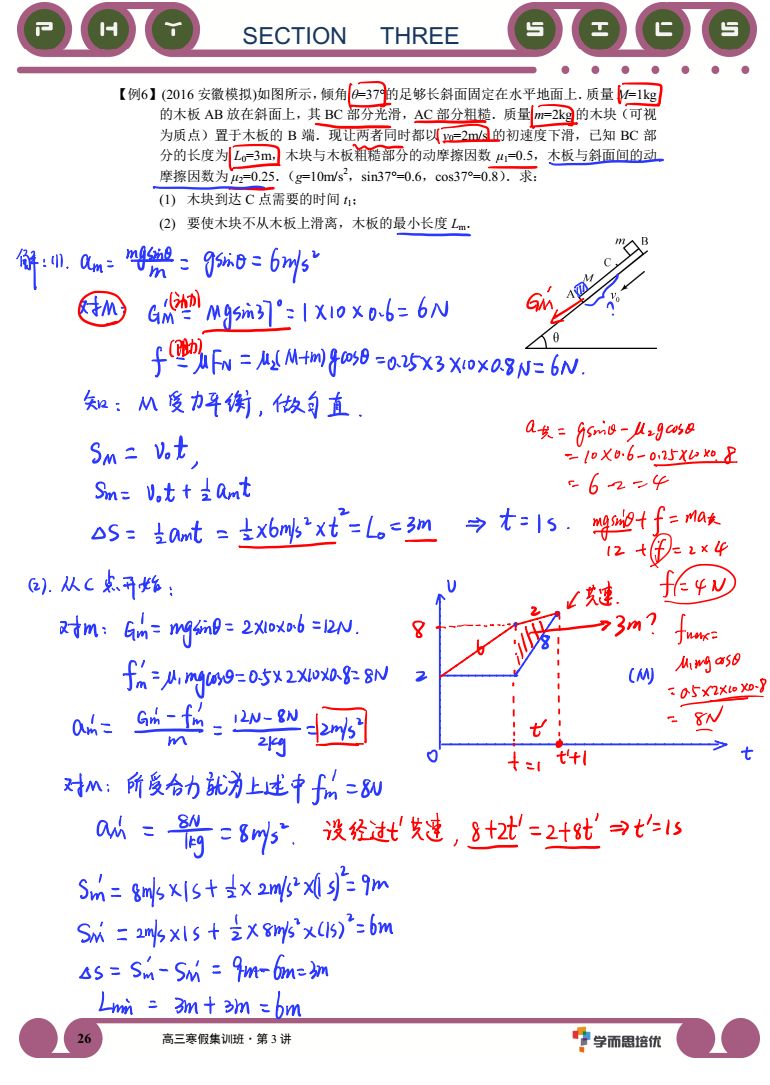 PHY SECTION THREE SICS
【例6】(2016 安徽模拟)如图所示，倾角 θ=37°的足够长斜面固定在水平地面上．质量 M=1kg
的木板 AB 放在斜面上，其 BC 部分光滑，AC 部分粗糙．质量 m=2kg 的木块（可视
为质点）置于木板的 B 端．现让两者同时都以 v₀=2m/s 的初速度下滑，已知 BC 部
分的长度为 L₀=3m，木块与木板粗糙部分的动摩擦因数 μ₁=0.5，木板与斜面间的动
摩擦因数为 μ₂=0.25.（g=10m/s²，sin37°=0.6，cos37°=0.8）．求：
(1) 木块到达 C 点需要的时间 t₁；
(2) 要使木块不从木板上滑离，木板的最小长度 Lₘ．
m B
C
M
A
v₀
?
θ
GM'
解：(1). am = mgsinθ/m = gsinθ = 6m/s²
对M： GM'(动力) = Mgsin37° = 1×10×0.6 = 6N
f(阻力) = μFN = μ₂(M+m)gcosθ = 0.25×3×10×0.8N = 6N.
知：M 受力平衡，做匀直．
SM = v₀t,
Sm = v₀t + ½amt
ΔS = ½amt = ½×6m/s²×t² = L₀ = 3m ⇒ t = 1s.
a共 = gsinθ - μ₂gcosθ
= 10×0.6 - 0.25×10×0.8
= 6 - 2 = 4
mgsinθ + f = ma共
12 + f = 2×4
f = 4N
fmax =
μ₁mgcosθ
= 0.5×2×10×0.8
= 8N
(2). 从C点开始：
对m： Gm' = mgsinθ = 2×10×0.6 = 12N.
fm' = μ₁mgcosθ = 0.5×2×10×0.8 = 8N
am' = (Gm' - fm')/m = (12N - 8N)/2kg = 2m/s²
υ
共速.
8
2
6
2
8
3m?
(M)
t'
0
t=1
t'+1
t
对M：所受合力就为上述中 fm' = 8N
aM' = 8N/1kg = 8m/s². 设经过t'共速，8+2t' = 2+8t' ⇒ t' = 1s
Sm' = 8m/s×1s + ½×2m/s²×(1s)² = 9m
SM' = 2m/s×1s + ½×8m/s²×(1s)² = 6m
ΔS = Sm' - SM' = 9m - 6m = 3m
Lmin = 3m + 3m = 6m
26 高三寒假集训班·第 3 讲
学而思培优